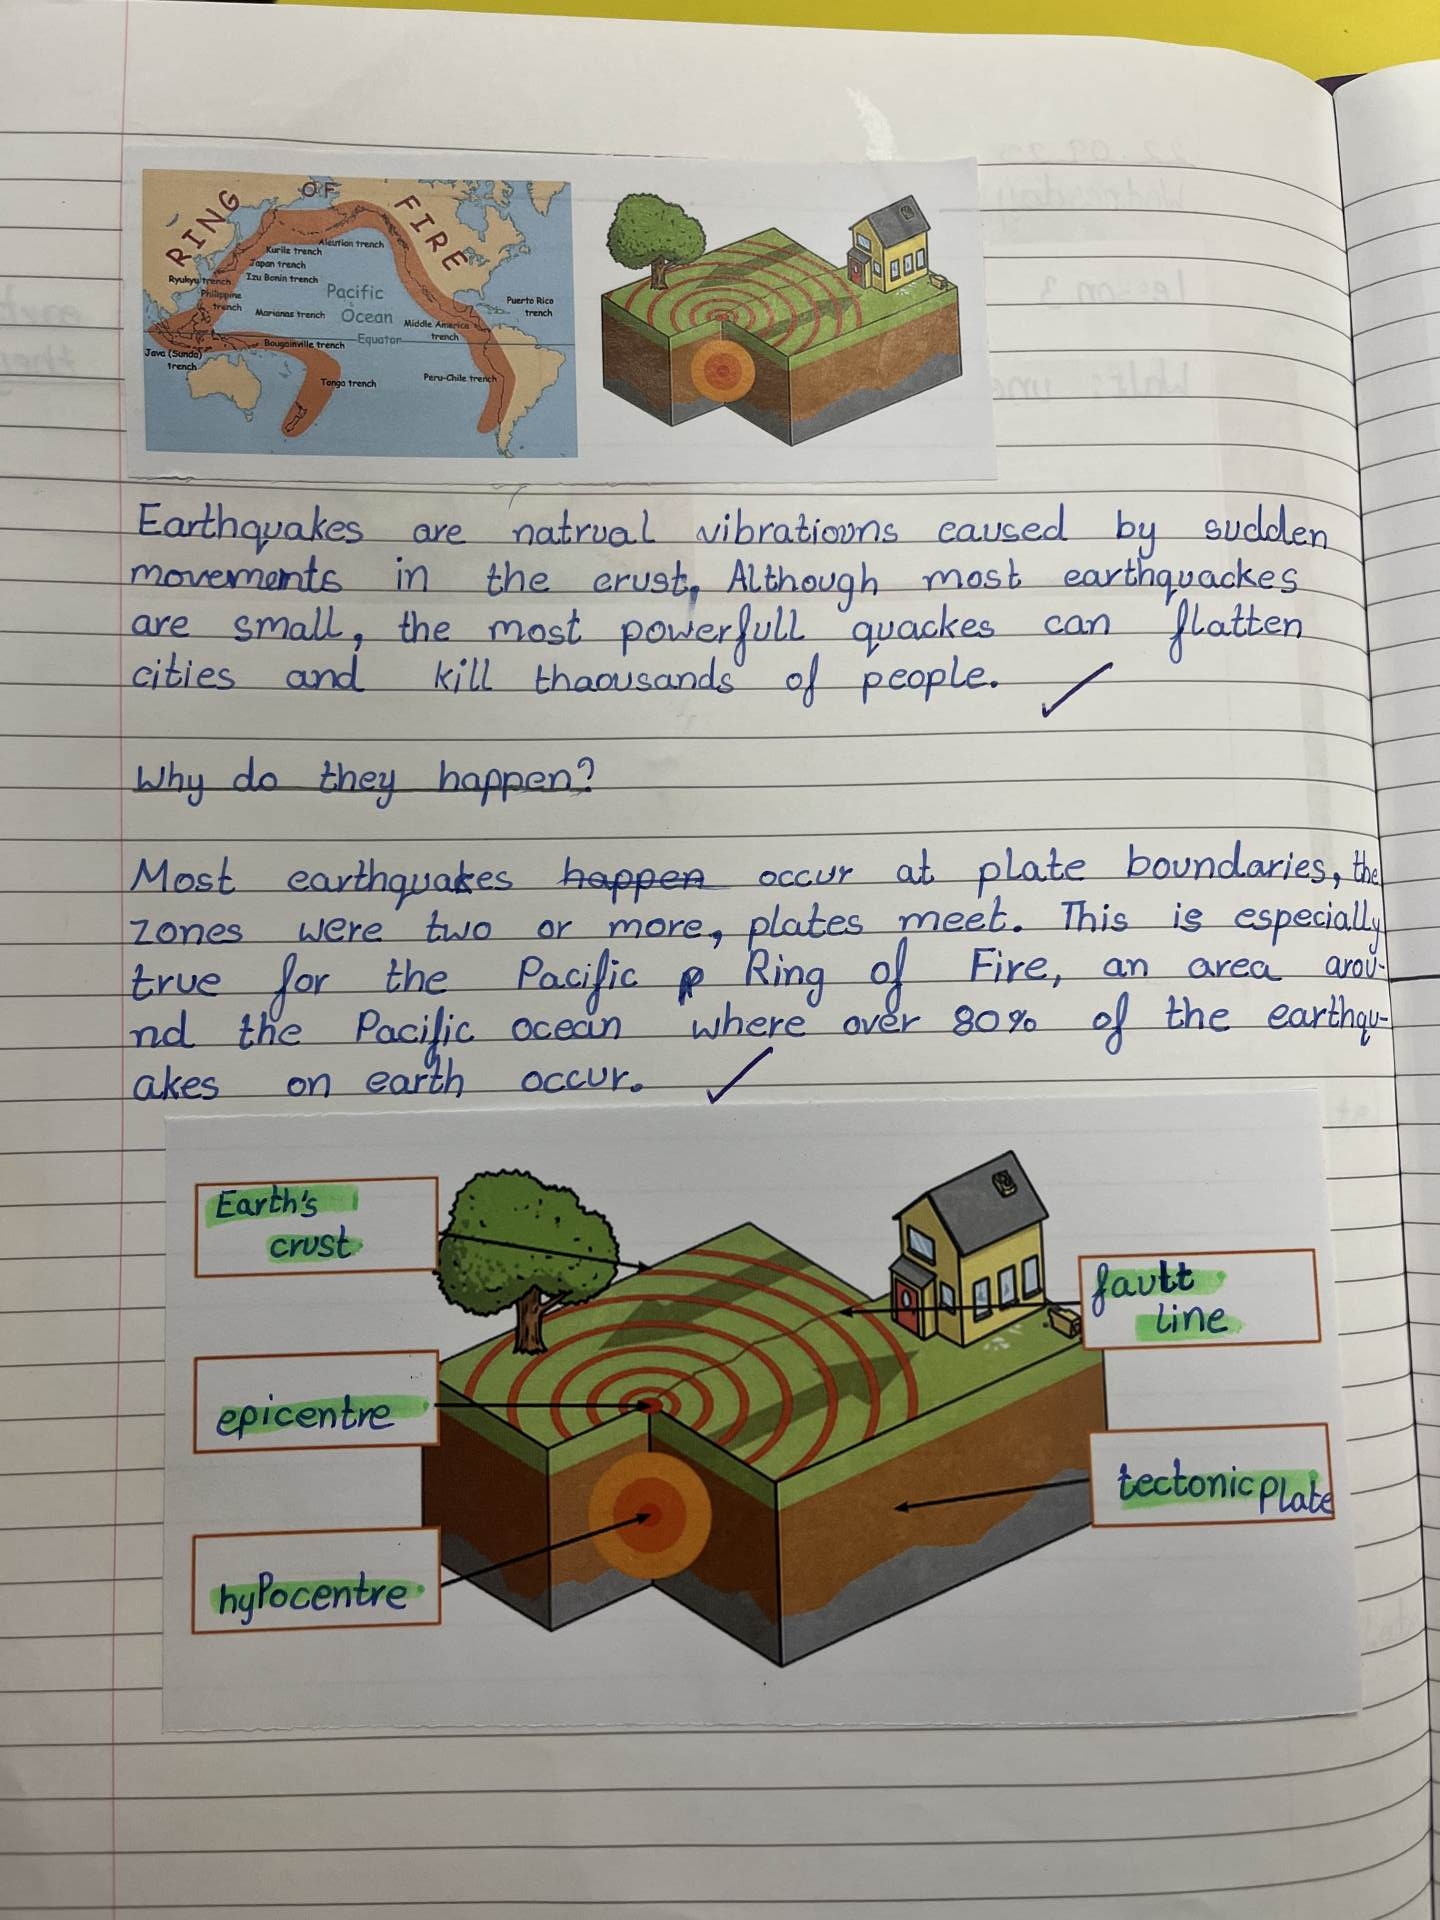 RING OF FIRE
Aleutian trench
Kurile trench
Japan trench
Izu Bonin trench
Ryukyu trench
Philippine
trench
Marianas trench
Pacific
Ocean
Equator
Bougainville trench
Java (Sunda)
trench
Tonga trench
Middle America
trench
Puerto Rico
trench
Peru-Chile trench
Earthquakes are natrual vibratiovns caused by sudden
movements in the crust, Although most earthquackes
are small, the most powerfull quackes can flatten
cities and kill thaousands of people.
Why do they happen?
Most earthquakes happen occur at plate boundaries, the
zones were two or more, plates meet. This is especially
true for the Pacific Ring of Fire, an area arou-
nd the Pacific ocean where over 80% of the earthqu-
akes on earth occur.
Earth's
crust
epicentre
hypocentre
fault
line
tectonic plate